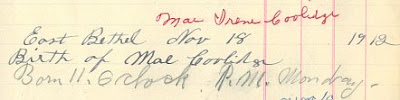 Mae Irene Coolidge
East Bethel Nov 18 1912
Birth of Mae Coolidge
Born 11. O clock. P.M. Monday.